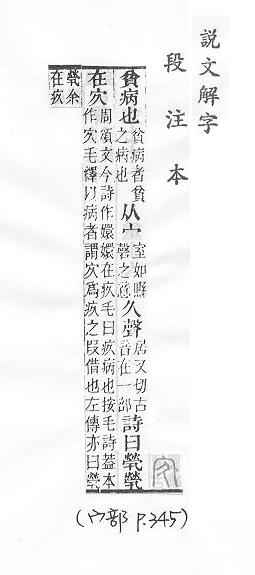 說文解字
段注本
貧病也貧病者貧之病也从宀室如縣罄之意久聲居又切古音在一部詩曰煢煢
在㝌周頌文今詩作嬛嬛在疚毛曰疚病也按毛詩蓋本作㝌毛釋以病者謂㝌爲疚之叚借也左傳亦曰煢
煢余在疚
(宀部 P.345)